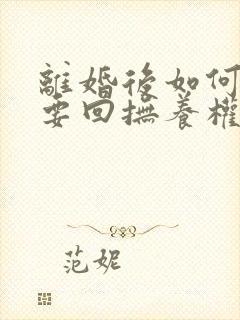 離婚後如何
要回撫養權
范妮